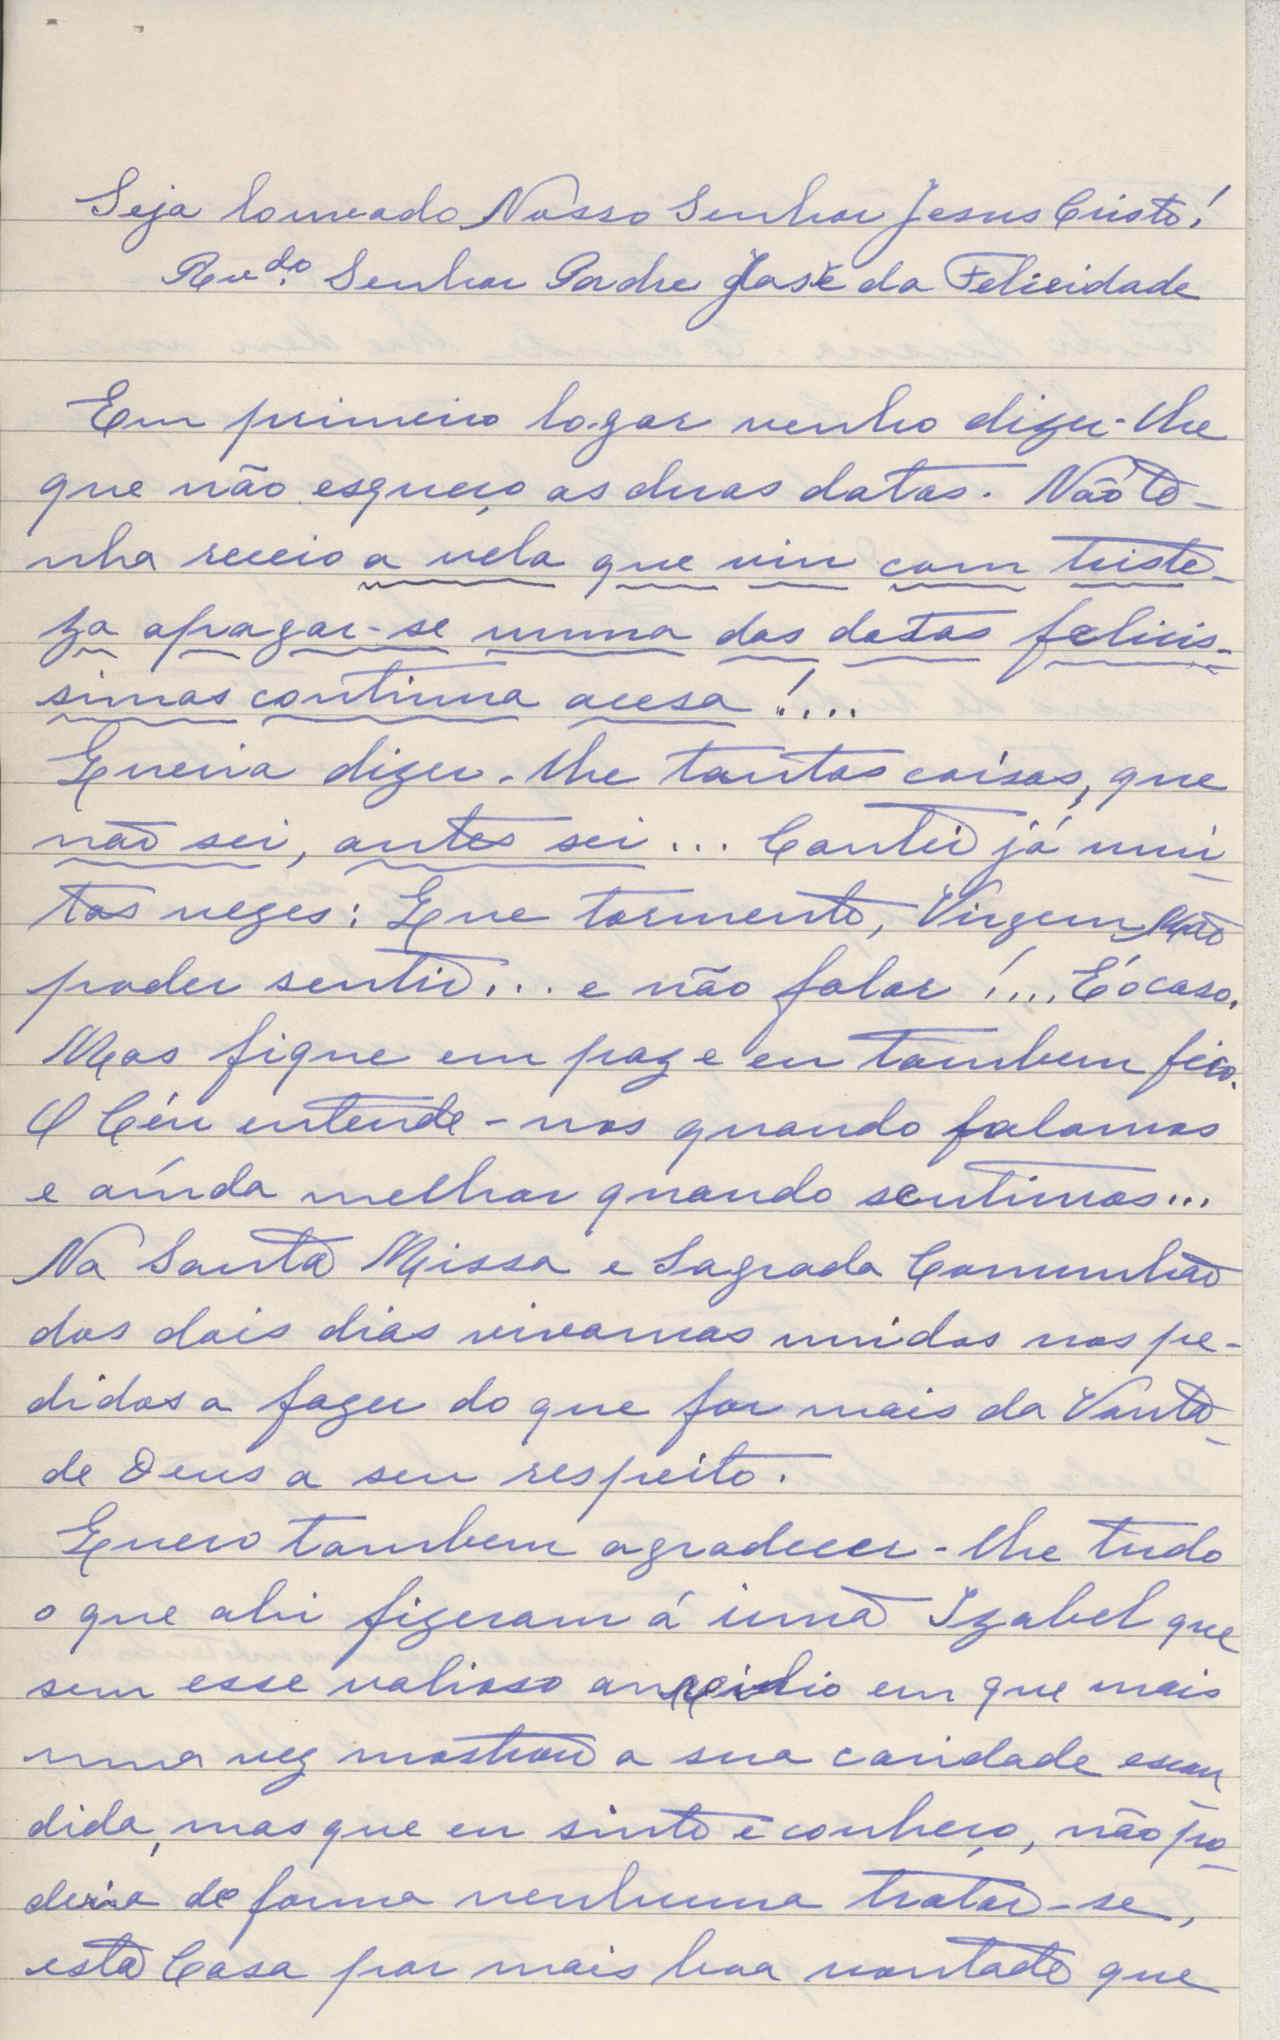 Seja louvado Nosso Senhor Jesus Cristo!
Revdo. Senhor Padre José da Felicidade
Em primeiro logar venho dizer-lhe
que não esqueço as duas datas. Não te-
nha receio a vela que vin com triste-
za apagar-se numa das datas felicis-
simas continua acesa!....
Queria dizer-lhe tantas coisas, que
não sei, antes sei... Cantei já mui-
tas vezes: Que tormento, Virgem Mãe
poder sentir... e não falar!.... É o caso.
Mas fique em paz e eu tambem fico.
O Céu entende-nos quando falamos
e aínda melhor quando sentimos...
Na Santa Missa e Sagrada Comunhão
dos dois dias vivamos unidos nos pe-
didos a fazer do que for mais da Vonta-
de Deus a seu respeito.
Quero tambem agradecer-lhe tudo
o que ahi fizeram á irmã Izabel que
sem esse valioso auxilio em que mais
uma vez mostrou a sua caridade escon-
dida, mas que eu sinto e conheço, não po-
deria de forma nenhuma tratar-se,
esta Casa por mais boa vontade que